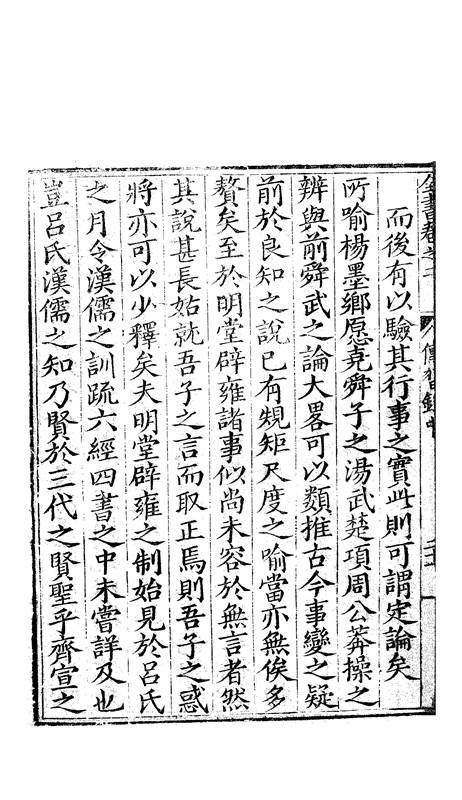 全書卷之二 傳習錄中
而後有以驗其行事之實此則可謂定論矣
所喻楊墨鄉愿堯舜子之湯武楚項周公莽操之
辨與前舜武之論大畧可以類推古今事變之疑
前於良知之說已有規矩尺度之喻當亦無俟多
贅矣至於明堂辟雍諸事似尚未容於無言者然
其說甚長姑就吾子之言而取正焉則吾子之惑
將亦可以少釋矣夫明堂辟雍之制始見於呂氏
之月令漢儒之訓疏六經四書之中未嘗詳及也
豈呂氏漢儒之知乃賢於三代之賢聖乎齊宣之